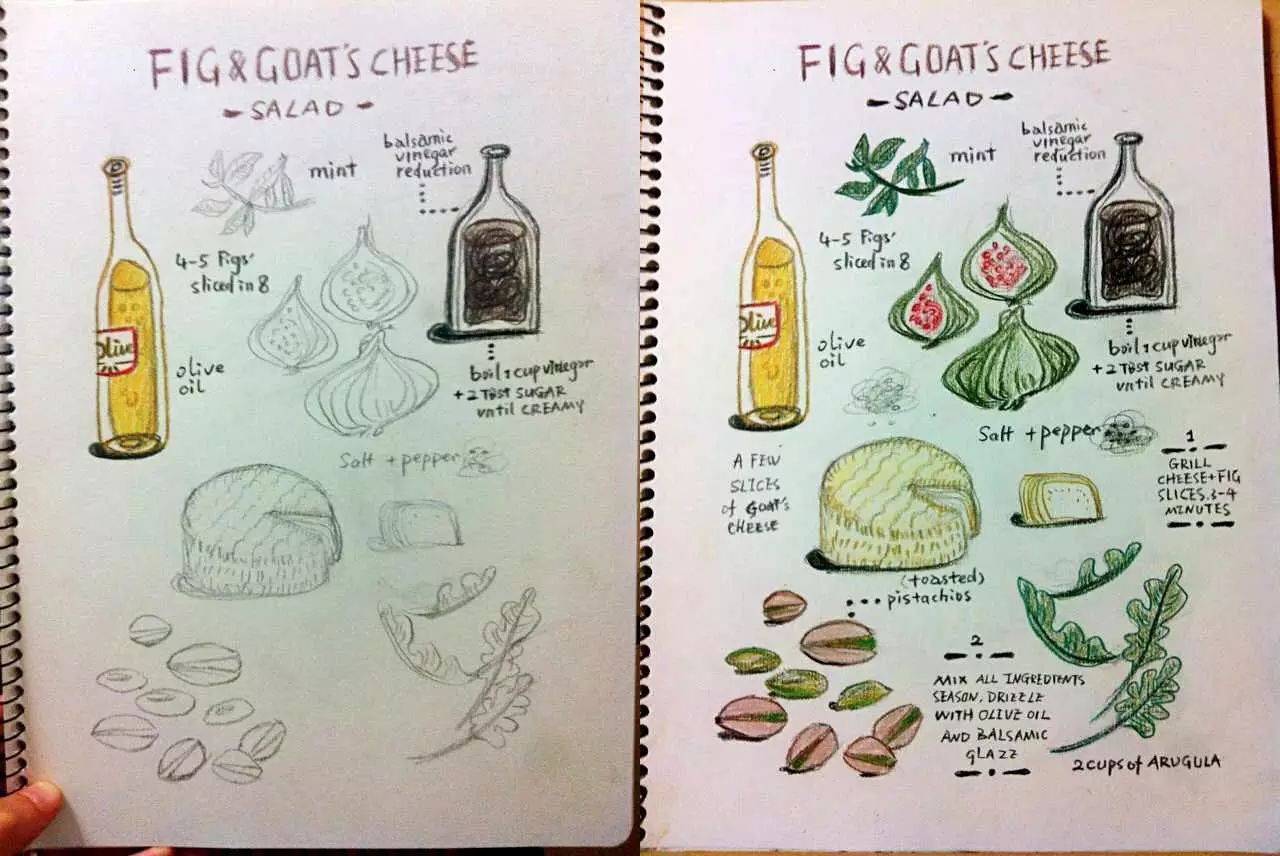 FIG & GOAT'S CHEESE
- SALAD -
mint
balsamic
vinegar
reduction
4-5 Figs'
sliced in 8
Olive
olive
oil
boil 1 cup vinegar
+ 2 TBST SUGAR
until CREAMY
Salt + pepper
FIG & GOAT'S CHEESE
- SALAD -
mint
balsamic
vinegar
reduction
4-5 Figs'
sliced in 8
Olive
olive
oil
boil 1 cup vinegar
+ 2 TBST SUGAR
until CREAMY
Salt + pepper
A FEW
SLICES
of GOAT'S
CHEESE
1
GRILL
CHEESE+FIG
SLICES. 3-4
MINUTES
(toasted)
pistachios
2
MIX ALL INGREDIENTS
SEASON, DRIZZLE
WITH OLIVE OIL
AND BALSAMIC
GLAZZ
2 CUPS of ARUGULA